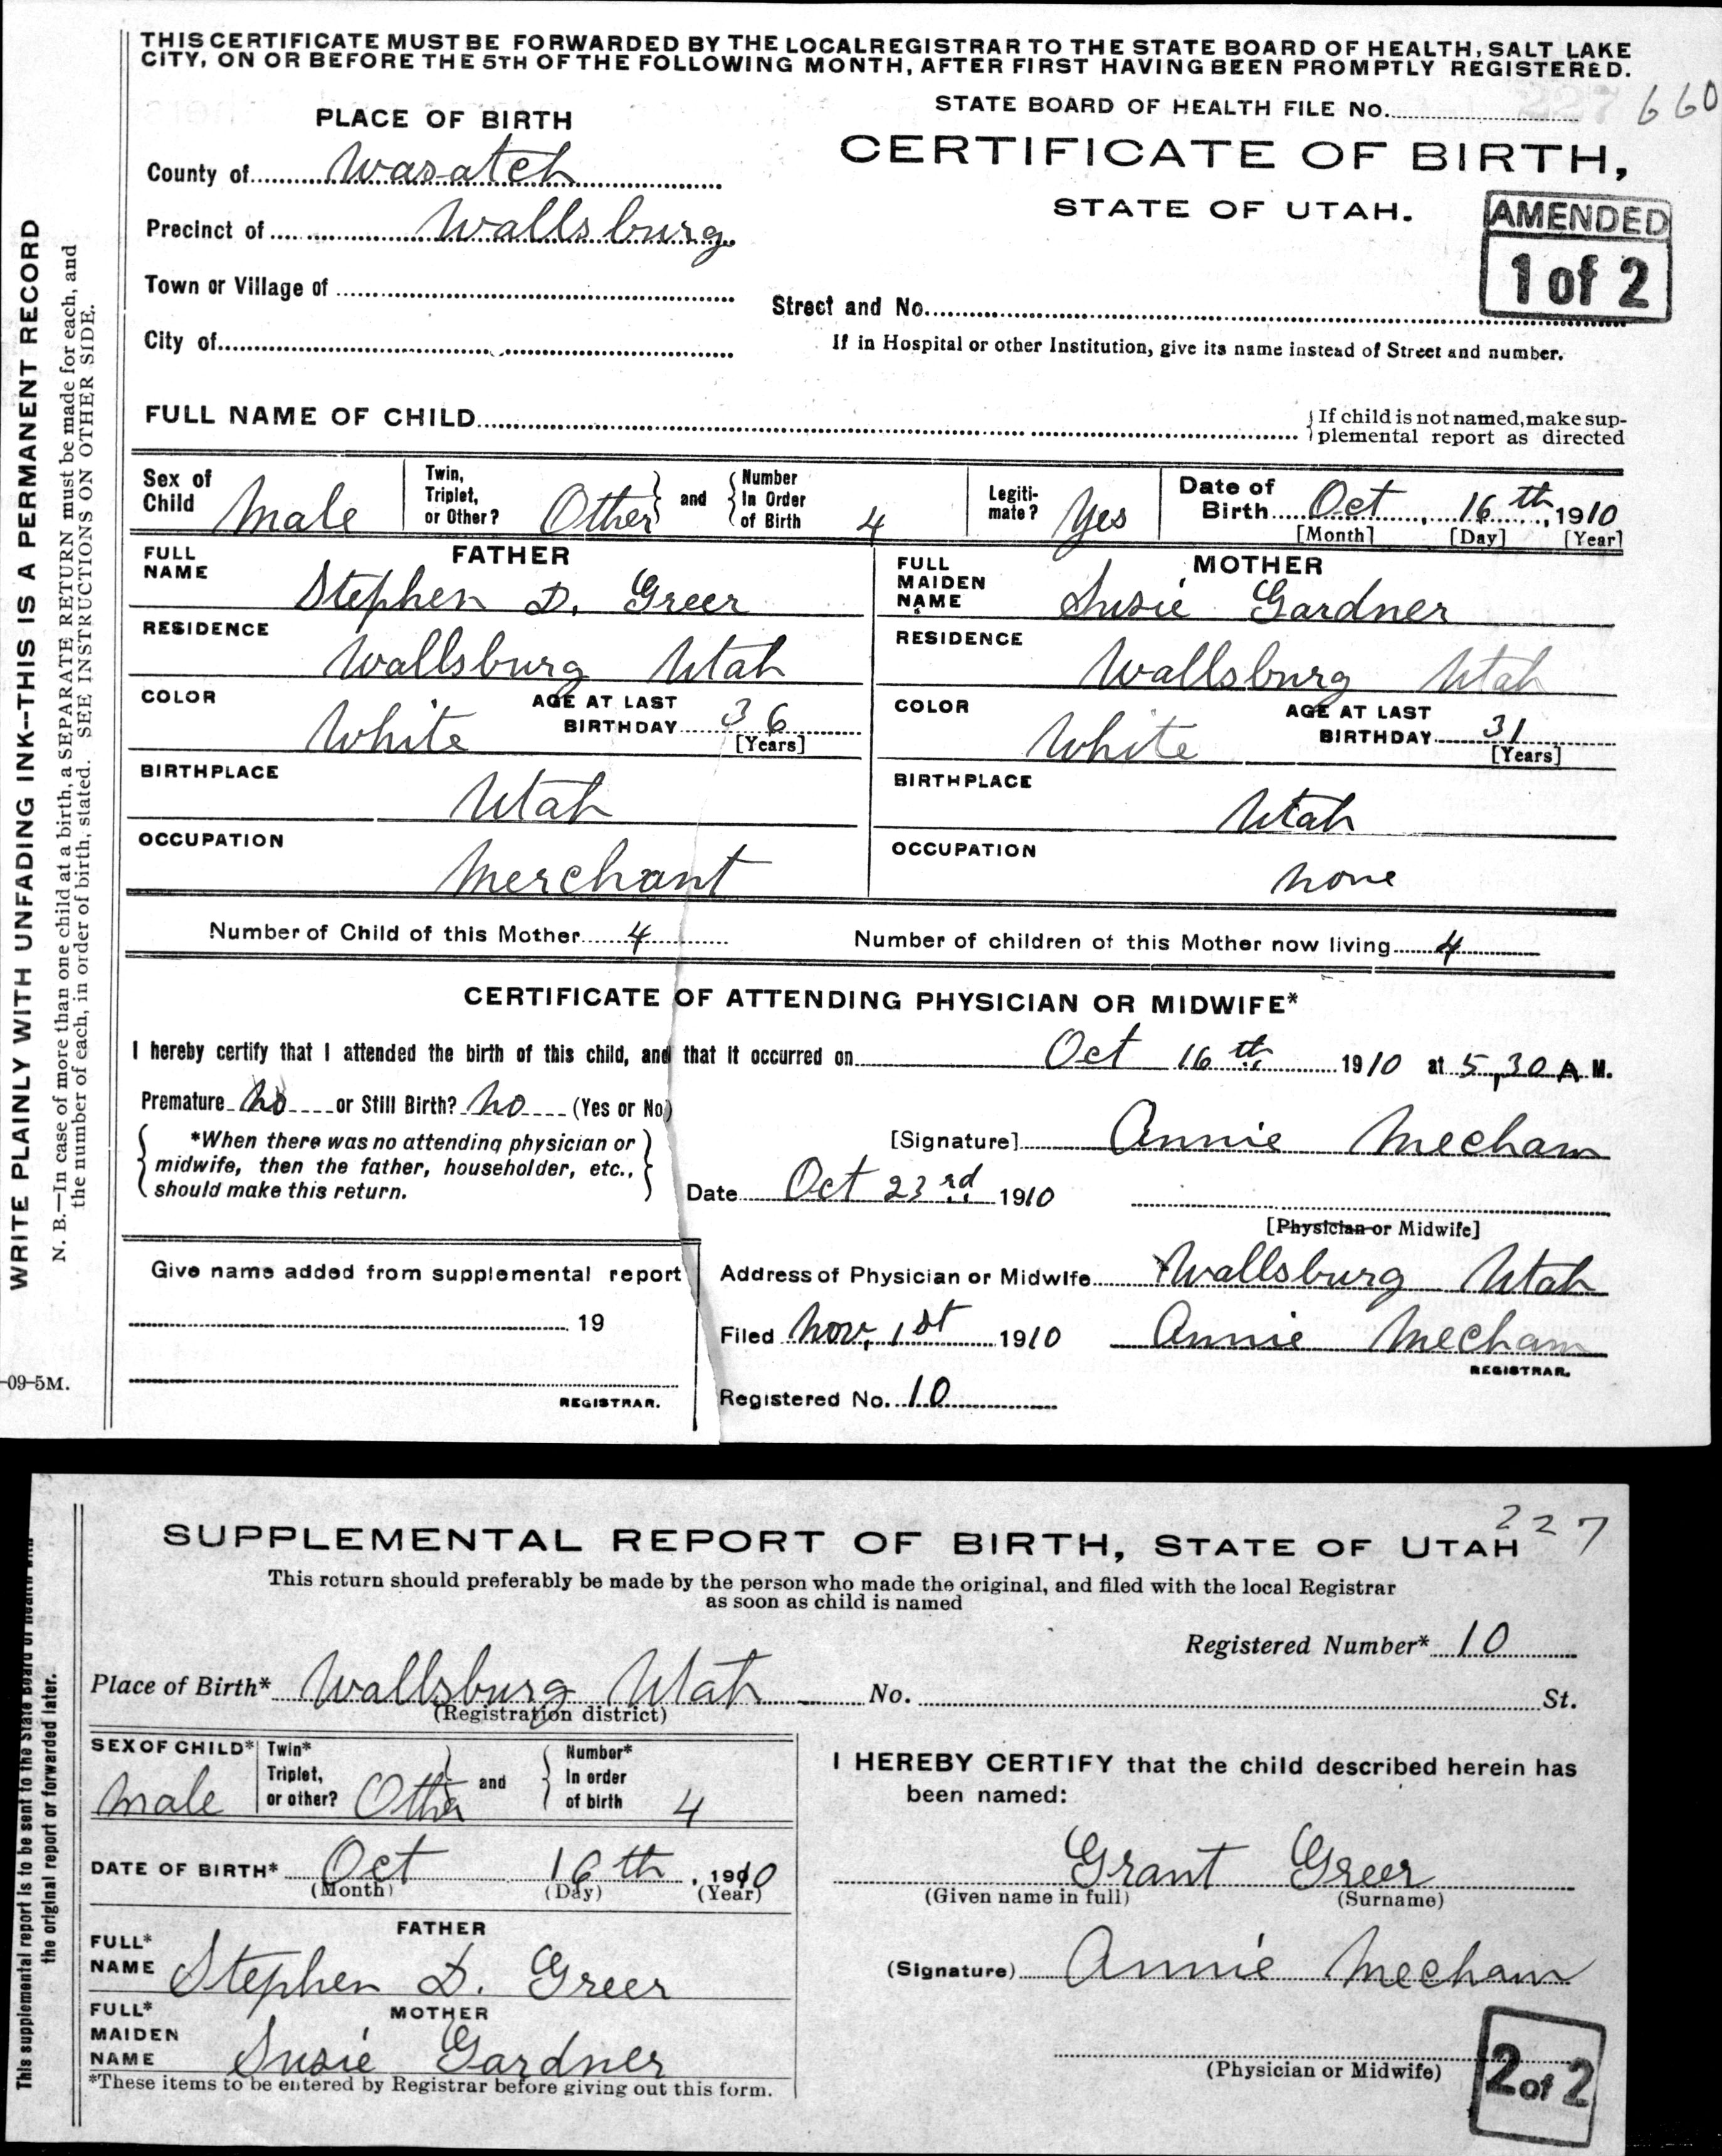 THIS CERTIFICATE MUST BE FORWARDED BY THE LOCAL REGISTRAR TO THE STATE BOARD OF HEALTH, SALT LAKE
CITY, ON OR BEFORE THE 5TH OF THE FOLLOWING MONTH, AFTER FIRST HAVING BEEN PROMPTLY REGISTERED.
STATE BOARD OF HEALTH FILE No. 227 660
PLACE OF BIRTH
CERTIFICATE OF BIRTH,
STATE OF UTAH.
AMENDED
1 of 2
County of Wasatch
Precinct of Wallsburg
Town or Village of
Street and No.
City of
If in Hospital or other Institution, give its name instead of Street and number.
FULL NAME OF CHILD
{If child is not named, make sup-
plemental report as directed
Sex of Child Male
Twin, Triplet, or Other? Other} and {Number In Order of Birth 4
Legiti-mate? Yes
Date of Birth Oct, 16th, 1910
[Month] [Day] [Year]
FATHER
FULL NAME Stephen D. Greer
RESIDENCE Wallsburg Utah
COLOR White AGE AT LAST BIRTHDAY 36 [Years]
BIRTHPLACE Utah
OCCUPATION Merchant
MOTHER
FULL MAIDEN NAME Susie Gardner
RESIDENCE Wallsburg Utah
COLOR White AGE AT LAST BIRTHDAY 31 [Years]
BIRTHPLACE Utah
OCCUPATION none
Number of Child of this Mother 4 Number of children of this Mother now living 4
CERTIFICATE OF ATTENDING PHYSICIAN OR MIDWIFE*
I hereby certify that I attended the birth of this child, and that it occurred on Oct 16th 1910 at 5,30 A M.
Premature no or Still Birth? no (Yes or No)
{*When there was no attending physician or
midwife, then the father, householder, etc.,
should make this return.}
[Signature] Annie Mecham
Date Oct 23rd 1910
[Physician or Midwife]
Give name added from supplemental report
19
REGISTRAR.
Address of Physician or Midwife Wallsburg Utah
Filed Nov, 1st 1910 Annie Mecham
REGISTRAR.
Registered No. 10
WRITE PLAINLY WITH UNFADING INK--THIS IS A PERMANENT RECORD
N. B.—In case of more than one child at a birth, a SEPARATE RETURN must be made for each, and
the number of each, in order of birth, stated. SEE INSTRUCTIONS ON OTHER SIDE.
-09-5M.
227
SUPPLEMENTAL REPORT OF BIRTH, STATE OF UTAH
This return should preferably be made by the person who made the original, and filed with the local Registrar
as soon as child is named
Registered Number* 10
Place of Birth* Wallsburg Utah No. St.
(Registration district)
SEX OF CHILD* Male
Twin* Triplet, or other? Other} and {Number* In order of birth 4
DATE OF BIRTH* Oct 16th, 1910
(Month) (Day) (Year)
FATHER
FULL* NAME Stephen D. Greer
MOTHER
FULL* MAIDEN NAME Susie Gardner
*These items to be entered by Registrar before giving out this form.
I HEREBY CERTIFY that the child described herein has
been named:
Grant Greer
(Given name in full) (Surname)
(Signature) Annie Mecham
(Physician or Midwife)
2 of 2
This supplemental report is to be sent to the State Board of Health with
the original report or forwarded later.